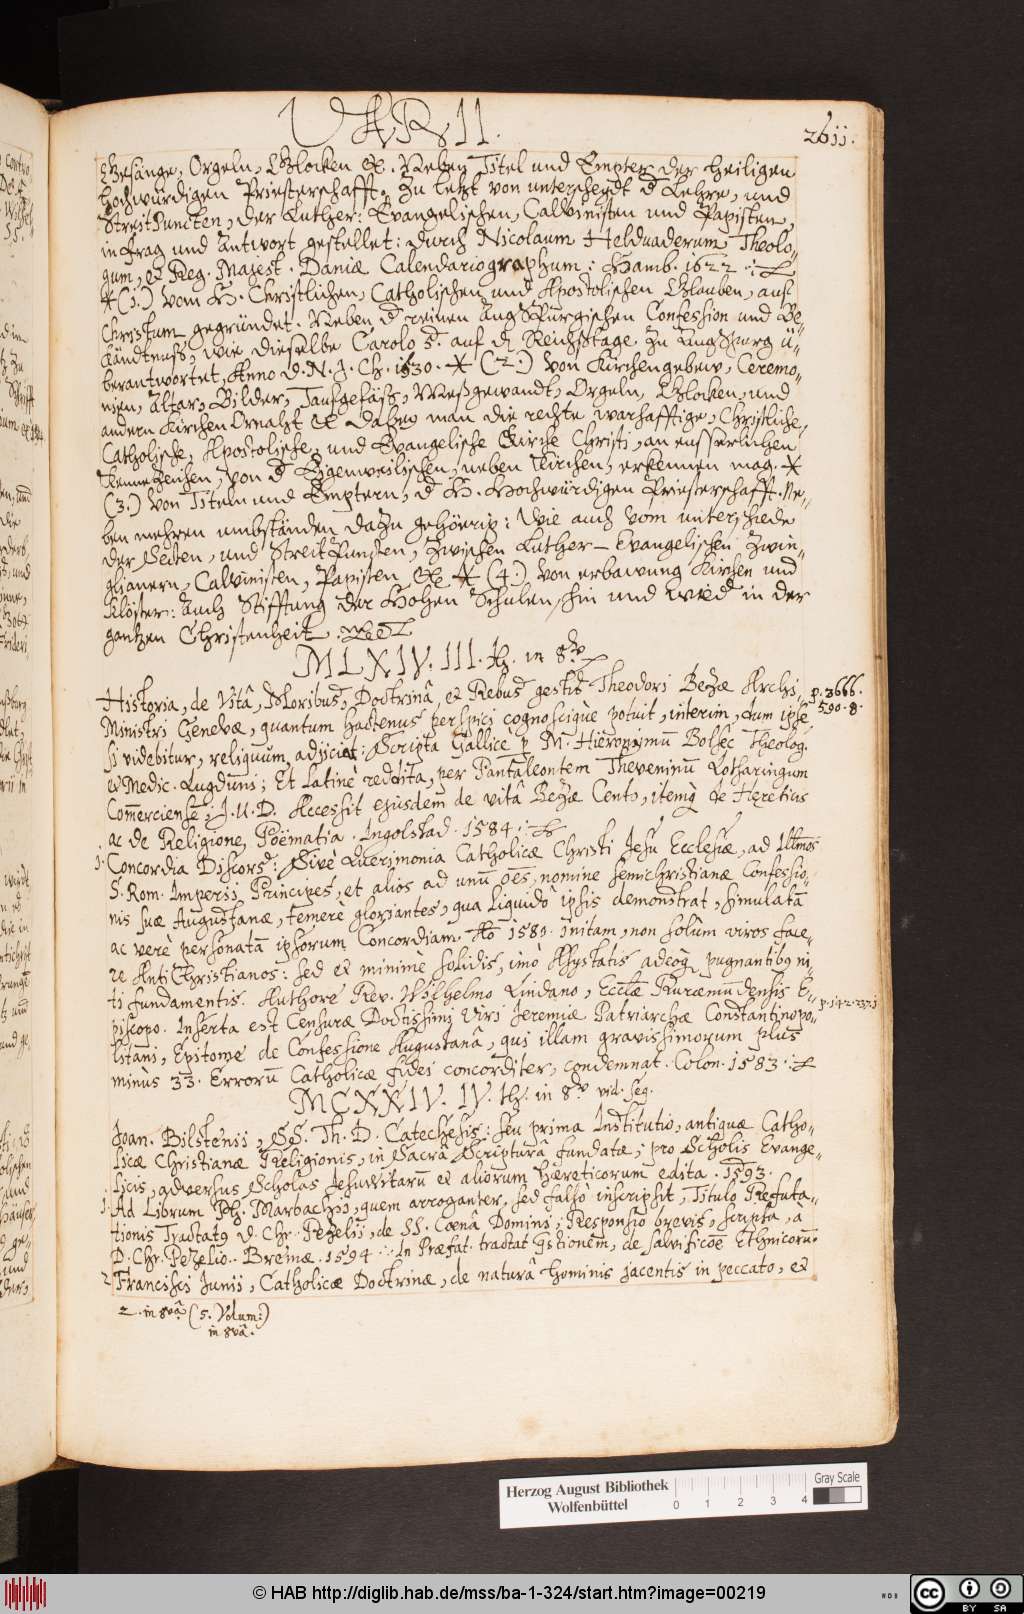 VAR II.
2611.
Gesänge, Orgeln, Glocken &c. Neben Titel und Empter der Heiligen
hochwürdigen Priesterschafft. Zu letzt von unterscheydt d Lehre, und
StreitPuncten, der Luther: Evangelischen, Calvinisten und Papisten,
in frag und Antwort gestellet: durch Nicolaum Helduaderum Theolo-
gum, & Reg. Majest. Daniæ Calendariographum: Hamb. 1622
(1.) Vom H. Christlichen, Catholischen und Apostolischen Glauben, auf
Christum gegründet. Neben d reinen AugSpurgischen Confession und Be-
kändtnuß, wie dieselbe Carolo 5. auf d Reichßtage zu AugSpurg ü-
berantwortet, Anno d. N. J. Ch. 1530. * (2.) Von Kirchengebew, Ceremo-
nien, Altar, Bilder, Taufgefäß, Meßgewandt, Orgeln, Glocken, und
andern Kirchen Ornaht &c Dabey man die rechte, warhafftige, Christliche,
Catholische, Apostolische, und Evangelische Kirche Christi, an eusserlichen
Kennezeichen, von d Eigenweilischen, neben Kirchen, erkennen mag. *
(3.) Von Titeln und Emptern, d H. Hochwürdigen Priesterschafft. Ne-
ben mehren umbständen dazu gehöerig: Wie auch vom unterschiede
der Secten, und StreitPuncten, Zwischen Luther-Evangelischen Zwin-
glianern, Calvinisten, Papisten, &c * (4.) Von erbawung Kirchen und
Klöster: Auch Stifftung der Hohen Schulen, hin und wied in der
gantzen Christenheit.
MLXIV. III. th. in 8vo
Historia, de Vitâ, Moribus, Doctrinâ, et Rebus gestis Theodori Bezæ Archi-
p. 3666.
590. 8.
Ministri Genevæ, quantum hactenus perspici cognoscique potuit, interim, dum ipse,
si videbitur, reliquum adjiciat: Scripta Gallicè p M. Hieronymum Bolsec Theolog.
& Medic. Lugduni; Et Latinè reddita, per Pantaleontem Theveninū Lotharingum
Com̄erciensē, J. U. D. Accessit ejusdem de vitâ Bezæ Cento, itemq de Heretius
ac de Religione, Poëmatia. Ingolstad. 1584.
1. Concordia Discors: Sive Querimonia Catholicæ Christi Jesu Ecclesiæ, ad Illmos
S. Rom. Imperii Principes, et alios ad unū oēs, nomine semichristianæ Confessio-
nis suæ Augustanæ, temerè gloriantes, qua liquidò ipsis demonstrat, simulatā
ac verè personatā ipsorum Concordiam Ao 1580. initam, non solùm viros face-
re AntiChristianos: sed et minimè solidis, imò Asystatis adeoq pugnantibq ni-
ti fundamentis. Authore Rev. Wilhelmo Lindano, Eccłæ Ruræmūdensis E-
p. 142. 237. 1
piscopo. Inserta est Censuræ Doctissimi Viri Jeremiæ Patriarchæ Constantinopo-
litani, Epitome de Confessione Augustanâ, qui illam gravissimorum plus
minùs 33. Errorū Catholicæ fidei concorditer, condemnat. Colon. 1583.
MCXXIV. IV. th. in 8vo vid. seq.
Joan. Bilstenii, SS. Th. D. Catechesis: seu prima Institutio, antiquæ Catho-
licæ Christianæ Religionis, in Sacrâ Scripturâ fundatæ; pro Scholis Evange-
licis, adversus Scholas Jesuvitarū et aliorum Hæreticorum edita. 1593.
1. Ad Librum Ph. Marbachii, quem arroganter, sed falsò inscripsit, Titulo Refuta-
tionis Tractatq D. Chr. Pezelii, de SS. Cœnâ Domini; Responsio brevis, scripta, à
D. Chr. Pezelio. Bremæ. 1594. In Præfat. tractat Qstionem, de salvificōe Ethnicoru.
2 Francisci Junii, Catholicæ Doctrinæ, de naturâ hominis jacentis in peccato, et
2. in 8vâ (5. Volum:)
in 8vâ.
Herzog August Bibliothek
Wolfenbüttel
0 1 2 3 4
Gray Scale
© HAB http://diglib.hab.de/mss/ba-1-324/start.htm?image=00219
cc BY SA